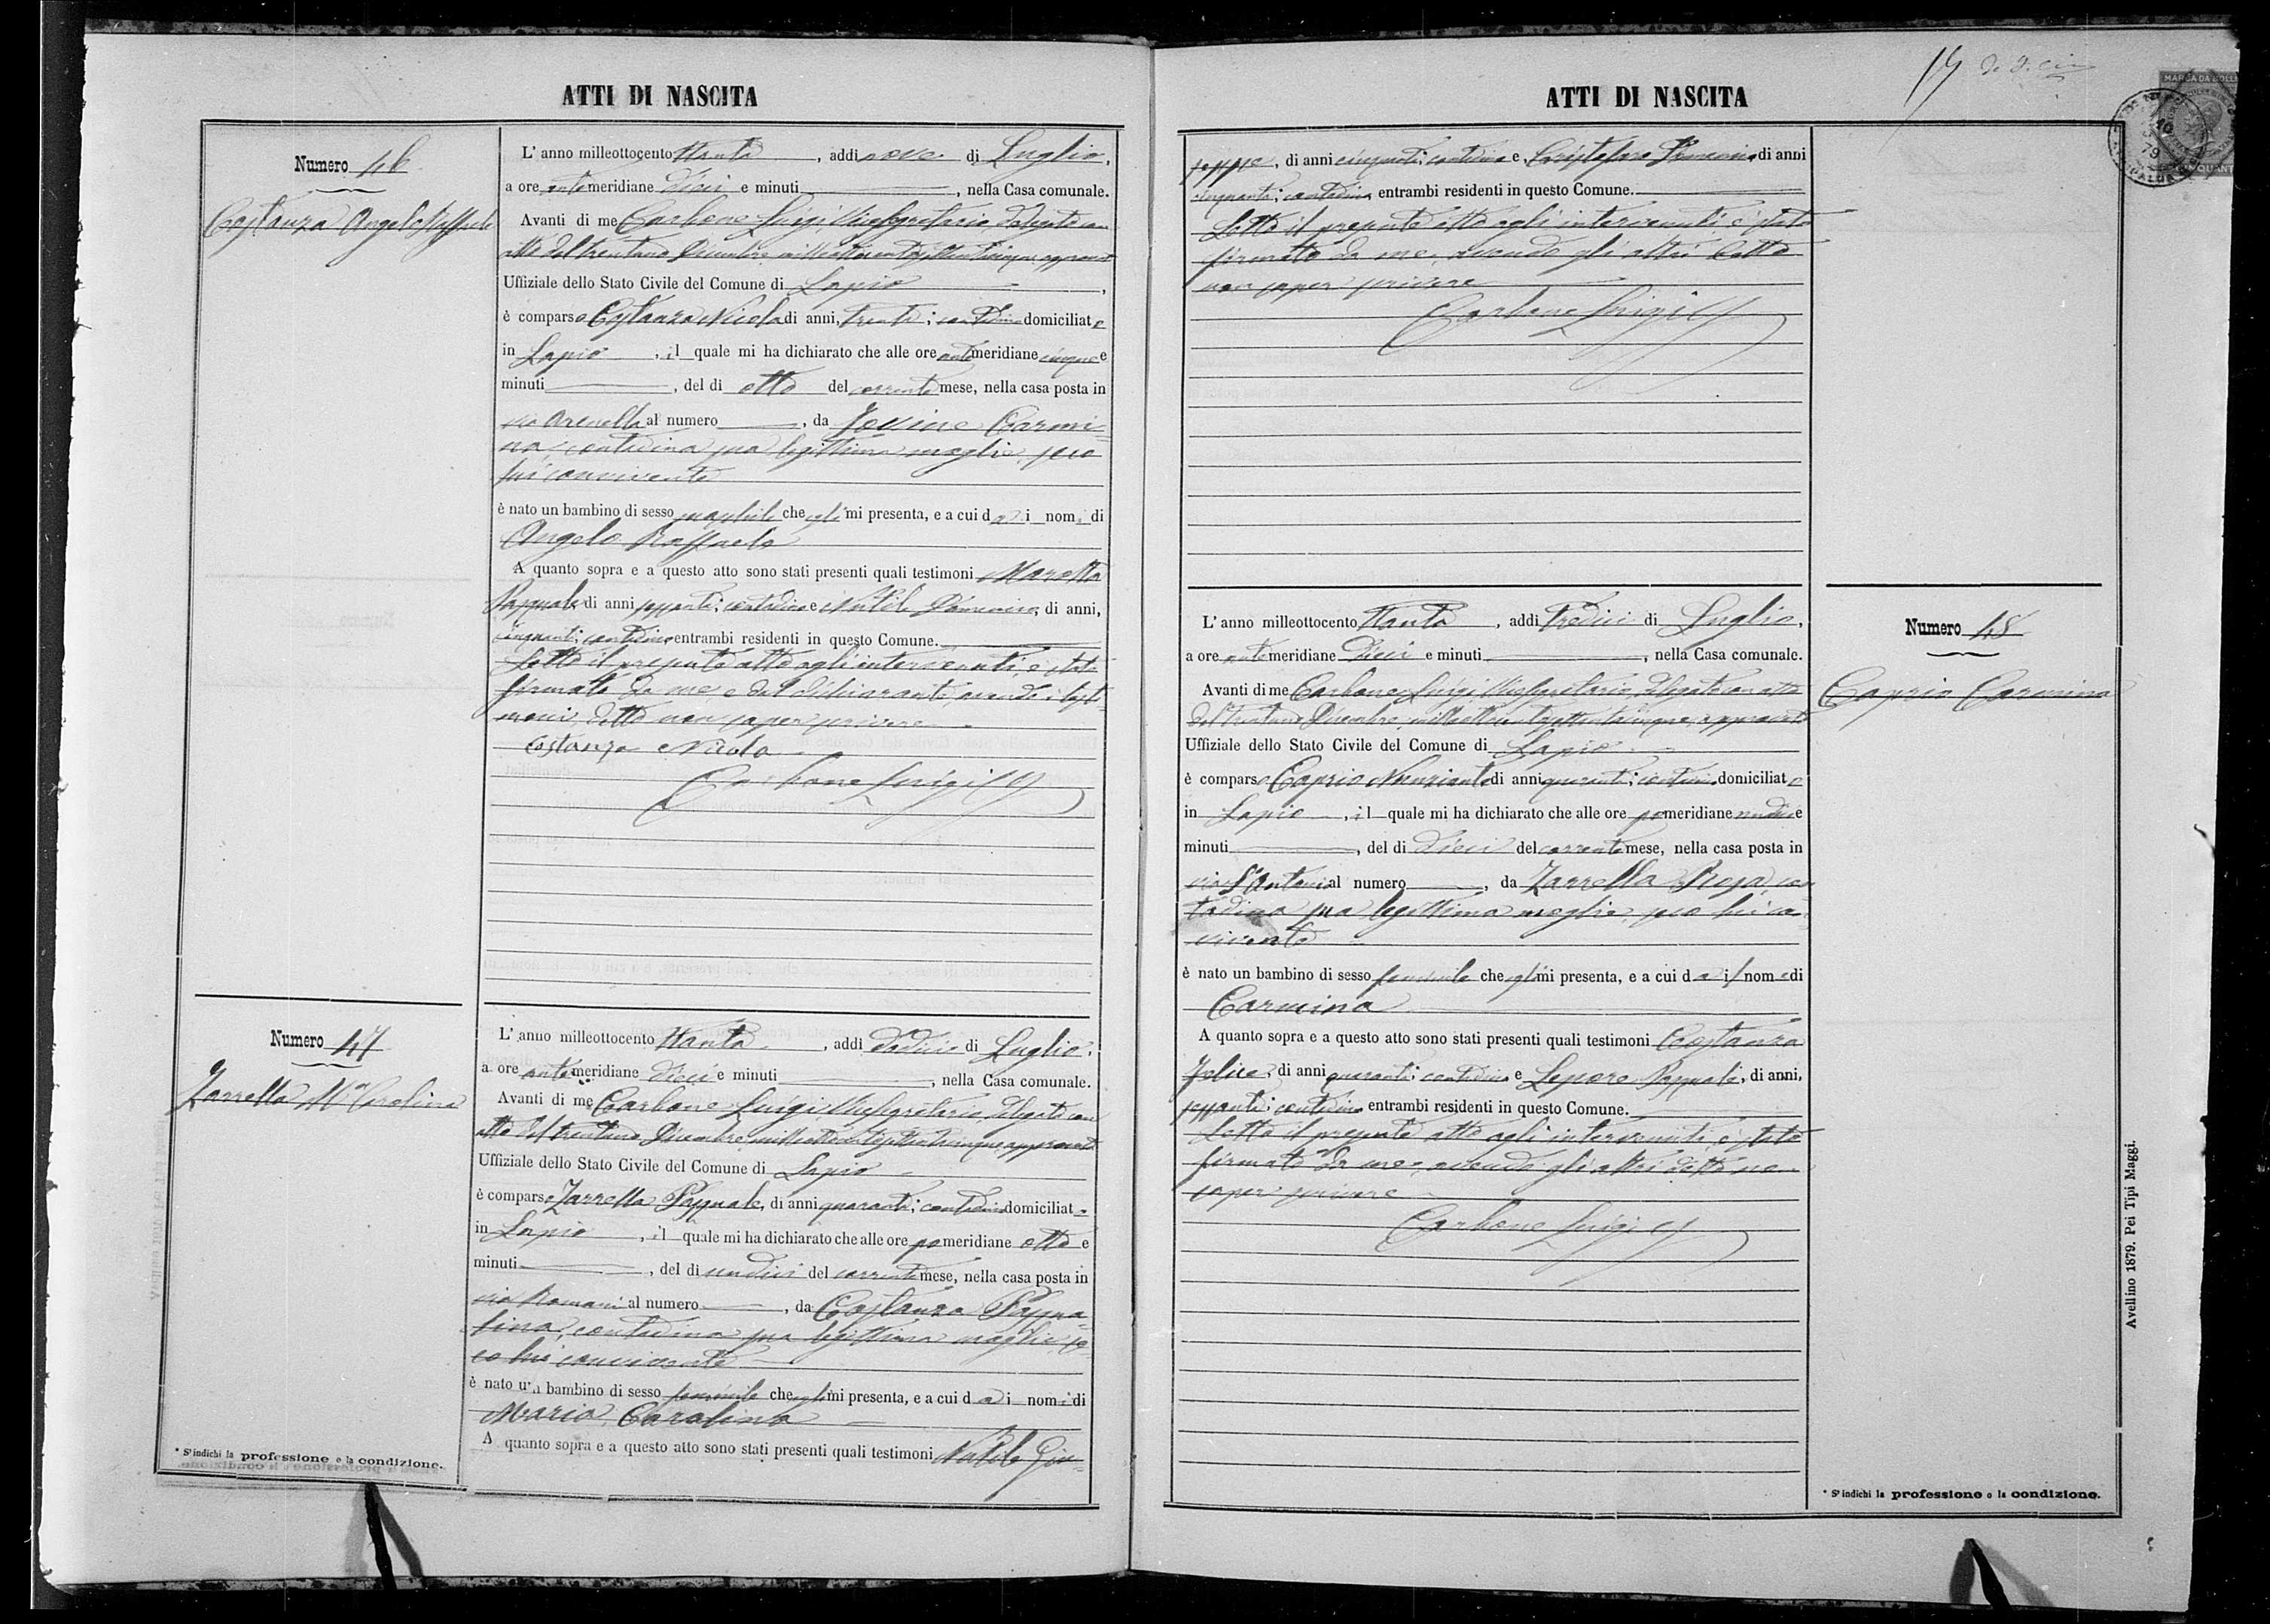 ATTI DI NASCITA
Numero 46
Costanza Angelo Raffaele
L' anno milleottocento ottanta, addì nove di Luglio,
a ore antemeridiane dieci e minuti, nella Casa comunale.
Avanti di me Carbone Luigi Vicesegretario, delegato con
atto del trentuno Dicembre milleottocentosettantacinque, approvato
Uffiziale dello Stato Civile del Comune di Lapio,
è comparso Costanza Nicola di anni, trenta; contadino domiciliato
in Lapio, il quale mi ha dichiarato che alle ore antemeridiane cinque e
minuti, del dì otto del corrente mese, nella casa posta in
via Arenella al numero, da Jovine Carmi-
na, contadina sua legittima moglie, seco
lui convivente
è nato un bambino di sesso maschile che egli mi presenta, e a cui dà i nomi di
Angelo Raffaele
A quanto sopra e a questo atto sono stati presenti quali testimoni
Pasquale di anni sessanta; contadino e Natile Domenico, di anni,
cinquanta; contadino entrambi residenti in questo Comune.
Letto il presente atto agli intervenuti, è stato
firmato da me e dal dichiarante, avendo i testi-
moni detto non saper scrivere
Costanza Nicola
Carbone Luigi
Numero 47
Zarrella Mª Carolina
L' anno milleottocento ottanta, addì dodici di Luglio,
a ore antemeridiane dieci e minuti, nella Casa comunale.
Avanti di me Carbone Luigi Vicesegretario, delegato con
atto del trentuno Dicembre milleottocentosettantacinque, approvato
Uffiziale dello Stato Civile del Comune di Lapio
è comparso Zarrella Pasquale, di anni quaranta; contadino domiciliato
in Lapio, il quale mi ha dichiarato che alle ore pomeridiane otto e
minuti, del dì undici del corrente mese, nella casa posta in
via Romani al numero, da Costanza Pasqua-
lina, contadina sua legittima moglie, se-
co lui convivente
è nato un bambino di sesso feminile che egli mi presenta, e a cui dà i nomi di
Maria Carolina
A quanto sopra e a questo atto sono stati presenti quali testimoni Natile Giu-
* S' indichi la professione o la condizione.
ATTI DI NASCITA
seppe, di anni cinquanta; contadino e Cristofaro di anni
cinquanta; contadino entrambi residenti in questo Comune.
Letto il presente atto agli intervenuti, è stato
firmato da me, avendo gli altri detto
non saper scrivere
Carbone Luigi
L' anno milleottocento ottanta, addì tredici di Luglio,
a ore antemeridiane dieci e minuti, nella Casa comunale.
Avanti di me Carbone Luigi Vicesegretario, delegato con atto
del trentuno Dicembre milleottocentosettantacinque, approvato
Uffiziale dello Stato Civile del Comune di Lapio
è comparso Caprio Nunziante di anni quaranta; contadino domiciliato
in Lapio, il quale mi ha dichiarato che alle ore pomeridiane undici e
minuti, del dì dieci del corrente mese, nella casa posta in
via S. Antonio al numero, da Zarrella Rosa, con-
tadina sua legittima moglie, seco lui con-
vivente
è nato un bambino di sesso feminile che egli mi presenta, e a cui dà il nome di
Carmina
A quanto sopra e a questo atto sono stati presenti quali testimoni Costanza
Felice, di anni quaranta; contadino e Lepore Pasquale, di anni,
sessanta; contadino entrambi residenti in questo Comune.
Letto il presente atto agli intervenuti, è stato
firmato da me, avendo gli altri detto non
saper scrivere
Carbone Luigi
Numero 48
Caprio Carmina
* S' indichi la professione o la condizione.
Avellino 1879. Pei Tipi Maggi.
MARCA DA BOLLO